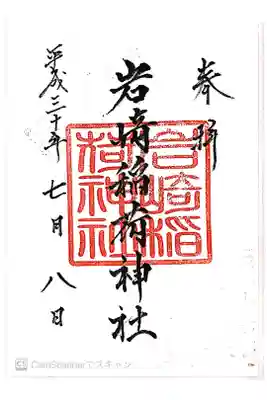 奉拝
岩崎稲荷神社
平成三十年 七月 八日
岩崎稲荷神社
CS CamScannerでスキャン